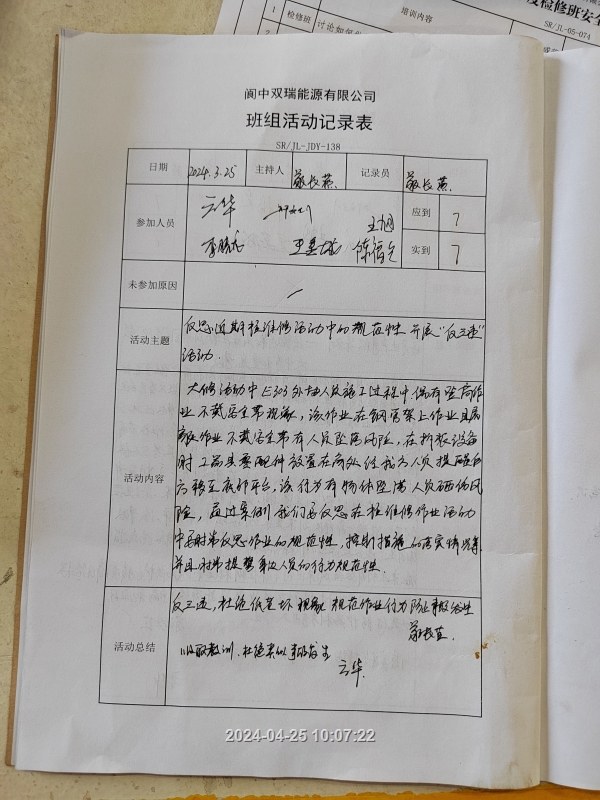 1 检修班 讨论如何
培训内容
度检修班安全
SR/JL-05-074
2
阆中双瑞能源有限公司
班组活动记录表
SR/JL-JDY-138
日期 2024.3.25 主持人 记录员
参加人员 云华 应到 7
李 王 陈 实到 7
未参加原因 /
活动主题 反思近期检维修活动中的规范性 开展“反三违”
活动.
活动内容 大修活动中E303外 人员施工过程中 偶有登高作
业不戴安全带现象, 该作业在钢管架上作业且属
高处作业 不戴安全带有人员坠落风险, 在拆装设备
时工器具零配件放置在高处经我方人员提醒后
移至底部平台, 该行为有物体坠落人员砸伤风
险, 通过案例我们要反思在检维修作业活动
中要时常反思作业的规范性, 控制措施的落实情况等
并且时常提醒 人员的行为规范性.
活动总结 反三违, 杜绝低老坏现象 规范作业行为 防止事故发生
吸取教训, 杜绝类似事故发生
云华
2024-04-25 10:07:22